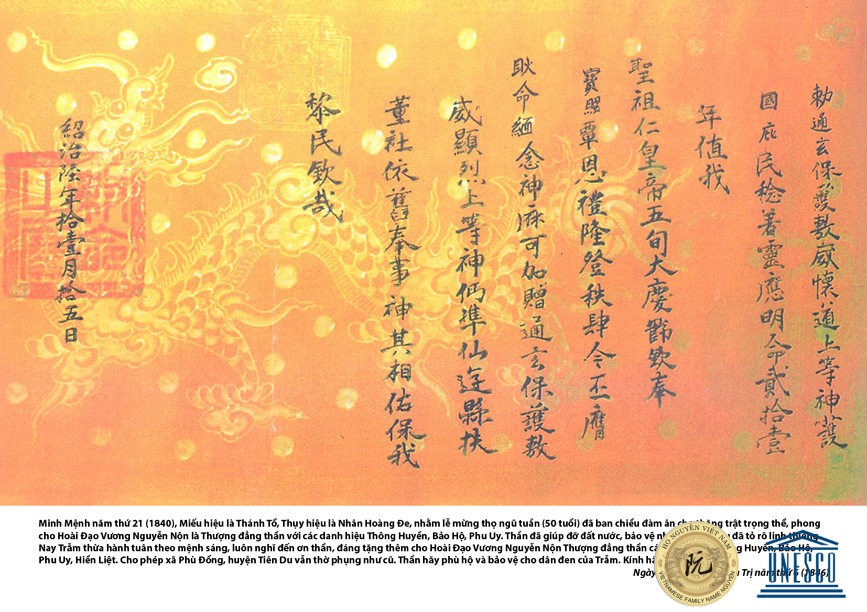 勅通玄保護敷威懷道上等神護
國庇民稔著靈應明命貳拾壹
年值我
聖祖仁皇帝五旬大慶節欽奉
寶照覃恩禮隆登秩肆今丕膺
耿命緬念神庥可加贈通玄保護敷
威顯烈上等神仍準仙遊縣扶
董社依舊奉事神其相佑保我
黎民欽哉
紹治陸年拾壹月拾五日
Minh Mệnh năm thứ 21 (1840), Miếu hiệu là Thánh Tổ, Thụy hiệu là Nhân Hoàng Đe, nhằm lễ mừng thọ ngũ tuần (50 tuổi) đã ban chiếu đàm ân trật trọng thể, phong
cho Hoài Đạo Vương Nguyễn Nộn là Thượng đẳng thần với các danh hiệu Thông Huyền, Bảo Hộ, Phu Uy. Thần đã giúp đỡ đất nước, bảo vệ đã tỏ rõ linh thiêng
Nay Trẫm thừa hành tuân theo mệnh sáng, luôn nghĩ đến ơn thần, đáng tặng thêm cho Hoài Đạo Vương Nguyễn Nộn Thượng đẳng thần Huyền, Bảo Hộ,
Phu Uy, Hiển Liệt. Cho phép xã Phù Đổng, huyện Tiên Du vẫn thờ phụng như cũ. Thần hãy phù hộ và bảo vệ cho dân đen của Trẫm. Kính
Ngày Trị năm thứ (1846)
HỌ NGUYỄN VIỆT NAM
阮
VIETNAMESE FAMILY NAME NGUYEN
UNESCO